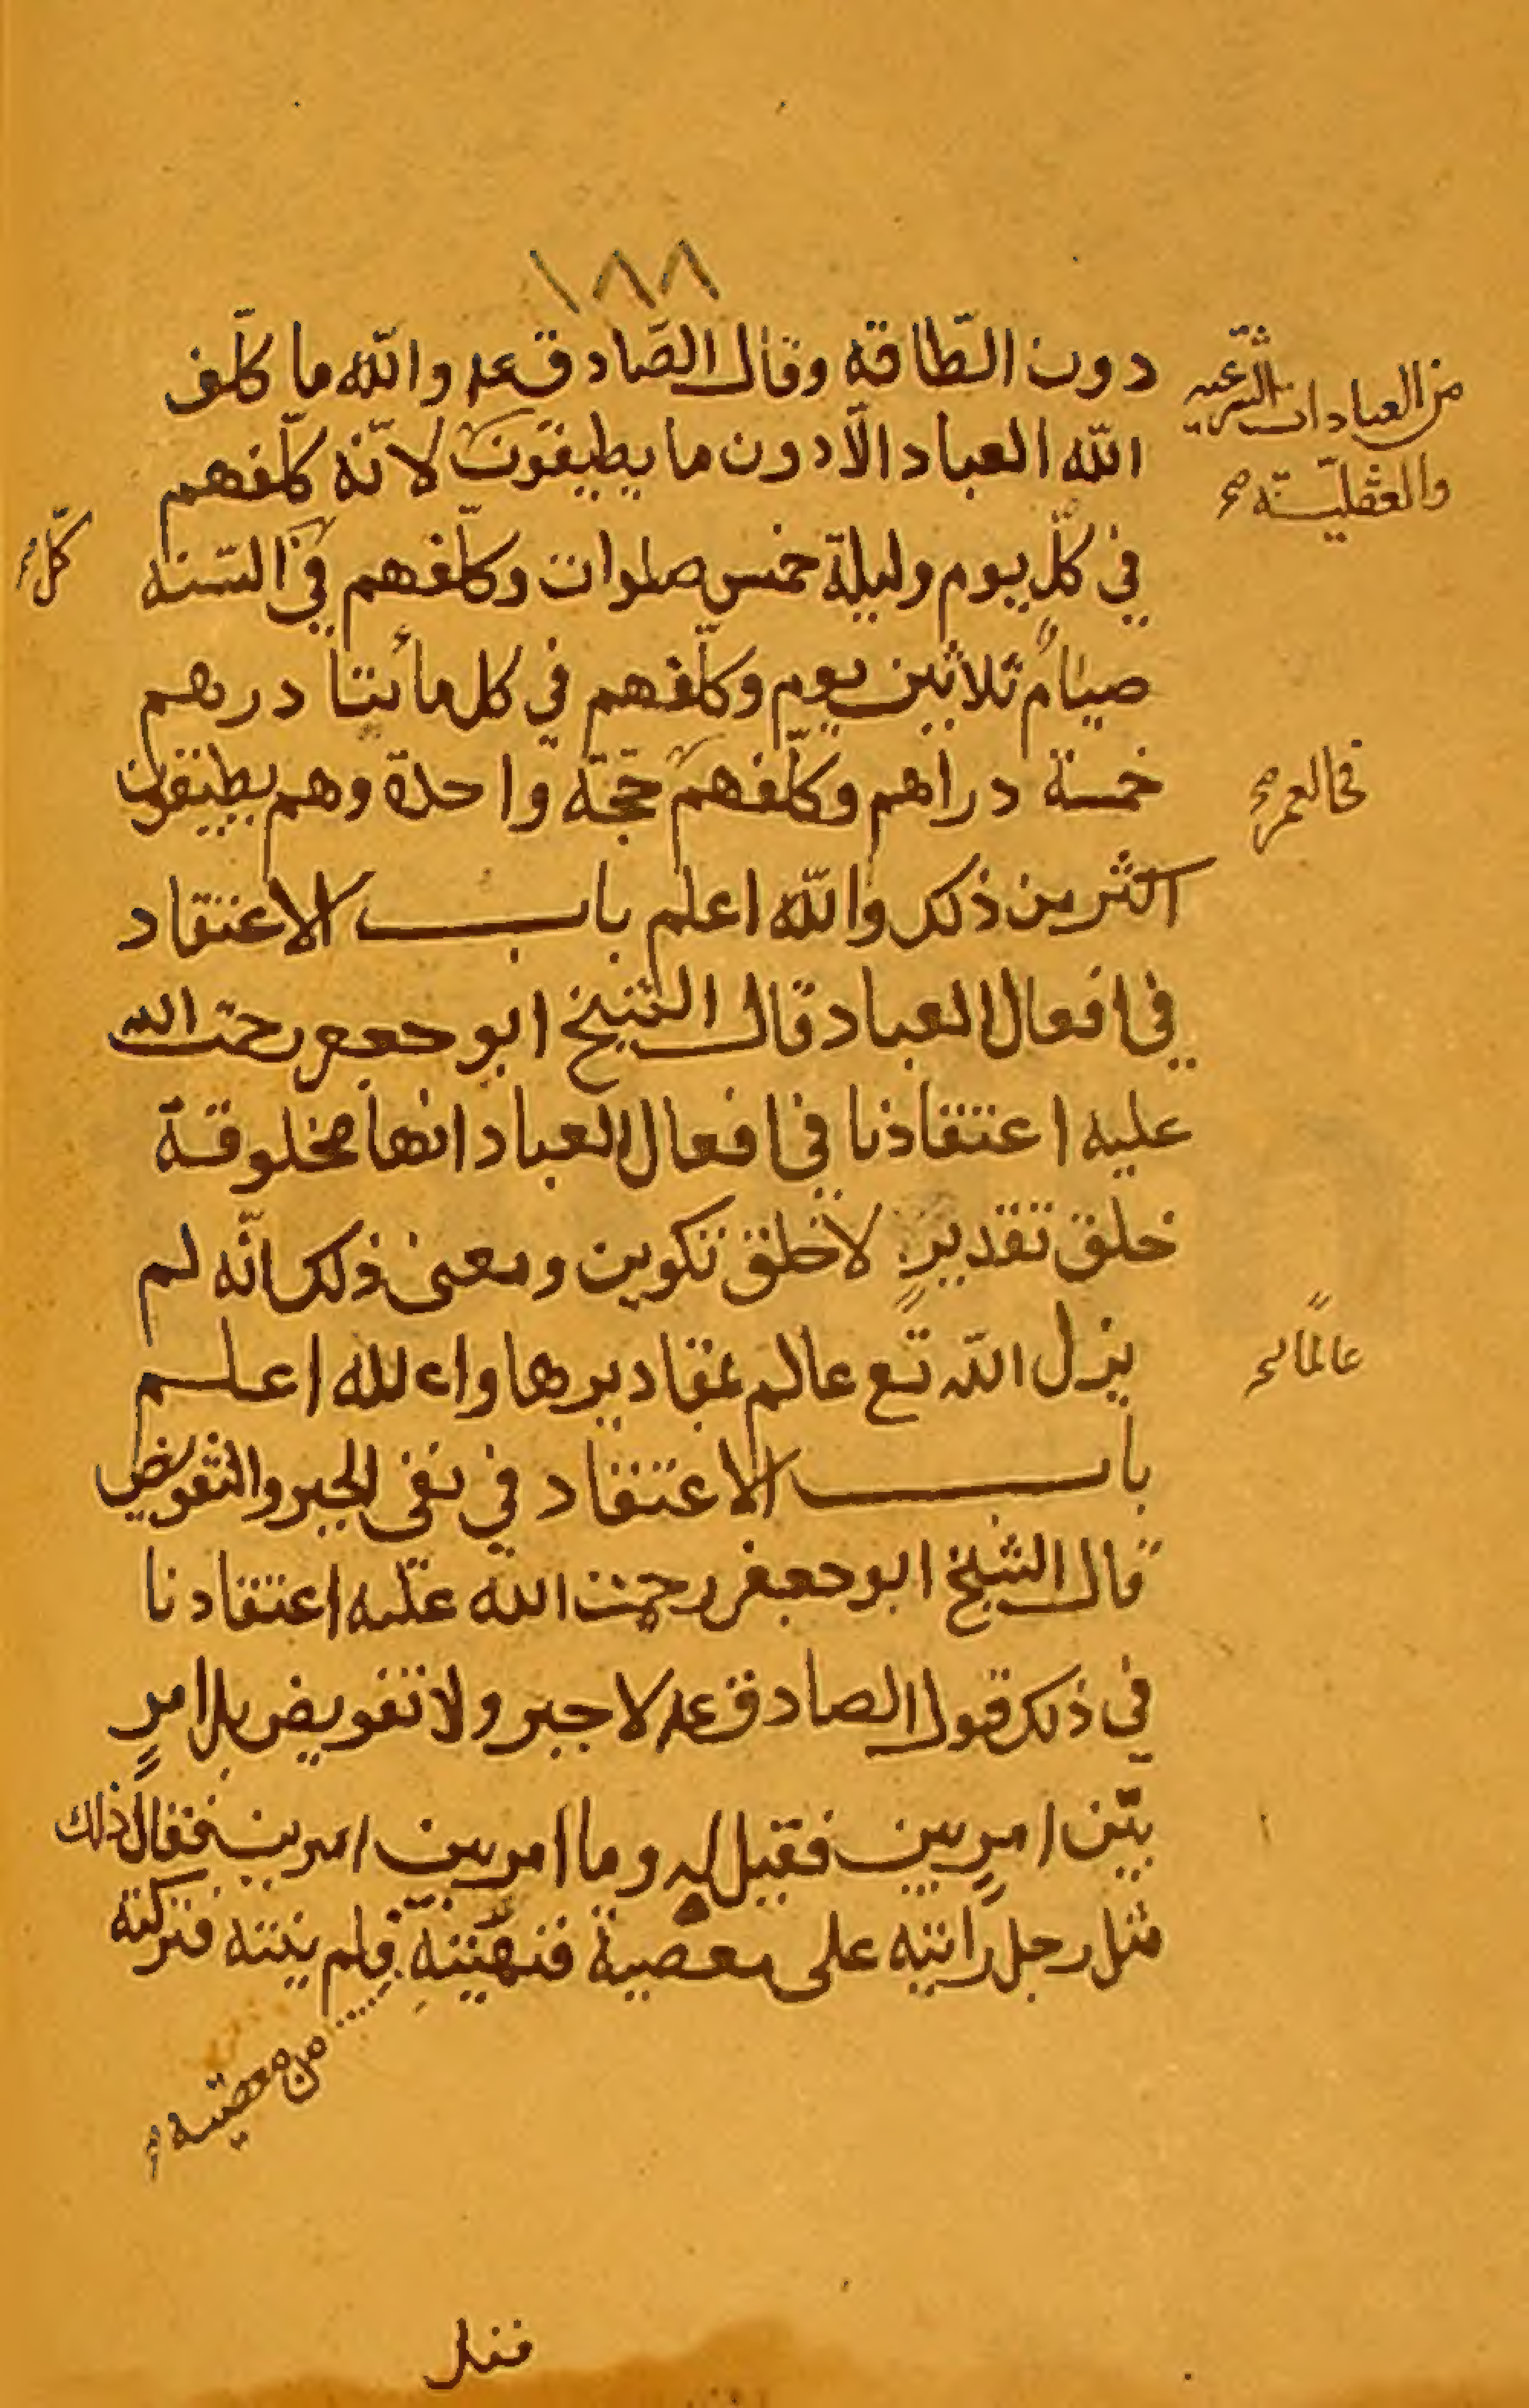 ١٨٨
دون الطّاقه وقال الصّادق عم والله ما كلّف
الله العباد الّا دون ما يطيقون لانّه كلّفهم
من العبادات الشّرعيه
والعقليّه صح
في كلّ يوم وليلة خمس صلوات وكلّفهم في السّنه
كلّ صح
صيام ثلاثين يوم وكلّفهم في كل مائتا درهم
خمسة دراهم وكلّفهم حجّة واحدة وهم يطيقون
في العمر صح
اكثر من ذلك والله اعلم باب الاعتقاد
في افعال العباد قال الشيخ ابو جعفر رحمت الله
عليه اعتقادنا في افعال العباد انها مخلوقة
خلق تقديرٍ لا خلق تكوين ومعنى ذلك انّه لم
يزل الله تع عالم بمقاديرها والله اعلم
عالماً صح
باب الاعتقاد في نفي الجبر والتفويض
قال الشيخ ابو جعفر رحمت الله عليه اعتقادنا
في ذلك قول الصادق عم لا جبر ولا تفويض بل امرٍ
بين امرين فقيل له وما امر بين امرين فقال ذلك
مثل رجل رأيته على معصية فنهيته فلم ينته فتركته
من معصيته
ففعل